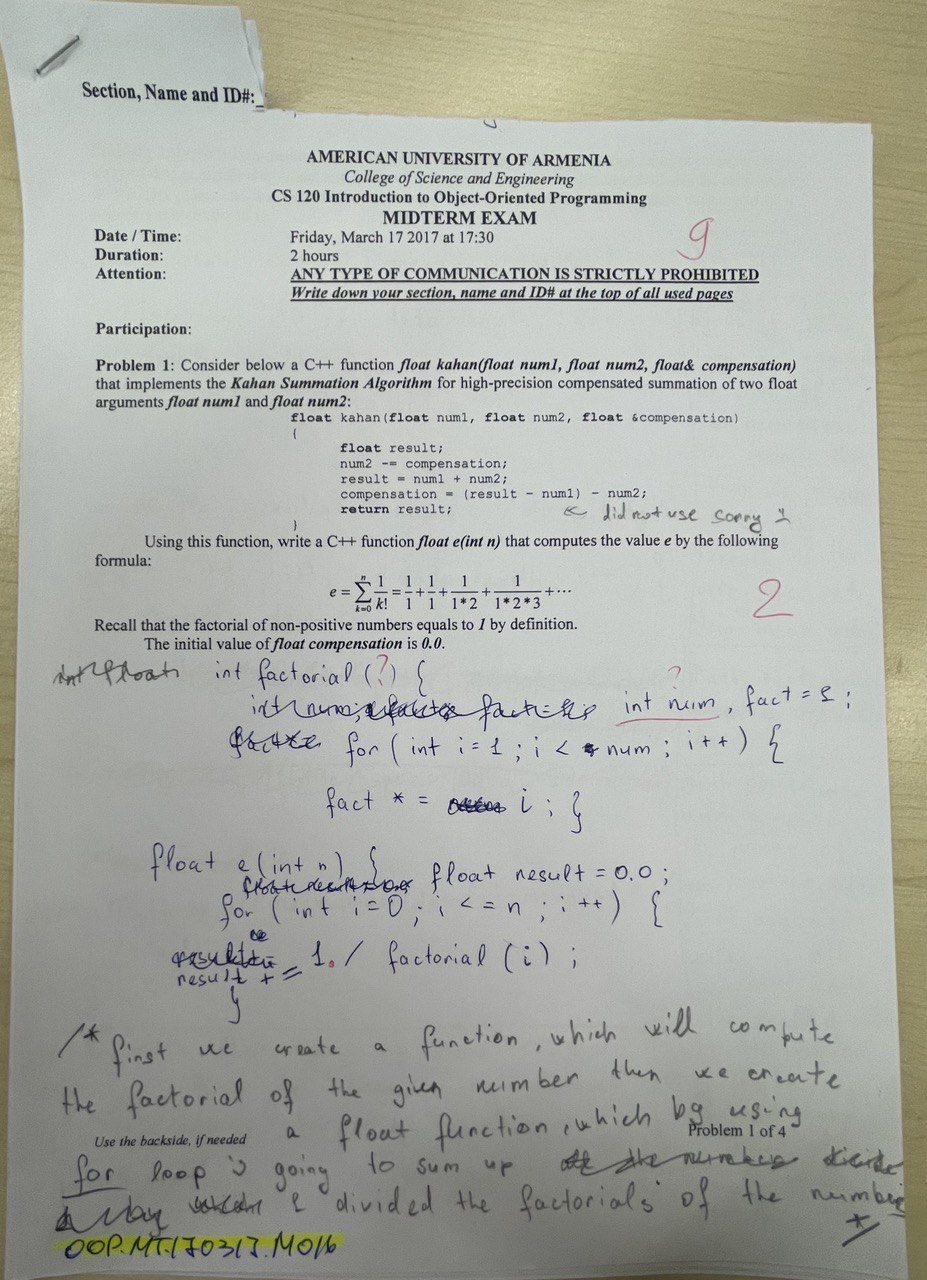 Section, Name and ID#:_
AMERICAN UNIVERSITY OF ARMENIA
College of Science and Engineering
CS 120 Introduction to Object-Oriented Programming
MIDTERM EXAM
9
Date / Time: Friday, March 17 2017 at 17:30
Duration: 2 hours
Attention: ANY TYPE OF COMMUNICATION IS STRICTLY PROHIBITED
Write down your section, name and ID# at the top of all used pages
Participation:
Problem 1: Consider below a C++ function float kahan(float num1, float num2, float& compensation)
that implements the Kahan Summation Algorithm for high-precision compensated summation of two float
arguments float num1 and float num2:
float kahan(float num1, float num2, float &compensation)
{
float result;
num2 -= compensation;
result = num1 + num2;
compensation = (result - num1) - num2;
return result;
did not use sorry
}
Using this function, write a C++ function float e(int n) that computes the value e by the following
formula:
e = ∑ⁿₖ₌₀ 1/k! = 1/1 + 1/1 + 1/1*2 + 1/1*2*3 + ···
2
Recall that the factorial of non-positive numbers equals to 1 by definition.
The initial value of float compensation is 0.0.
int factorial (?) {
?
int num, fact = 1;
for ( int i = 1 ; i < num ; i++ ) {
fact * = i ; }
float e (int n) { float result = 0.0 ;
for ( int i = 0 ; i <= n ; i++ ) {
result += 1. / factorial (i) ;
}
/* first we create a function, which will compute
the factorial of the given number then we create
a float function, which by using
Use the backside, if needed Problem 1 of 4
for loop is going to sum up
1 divided the factorials of the number
*/
OOP.MT.170317.M016